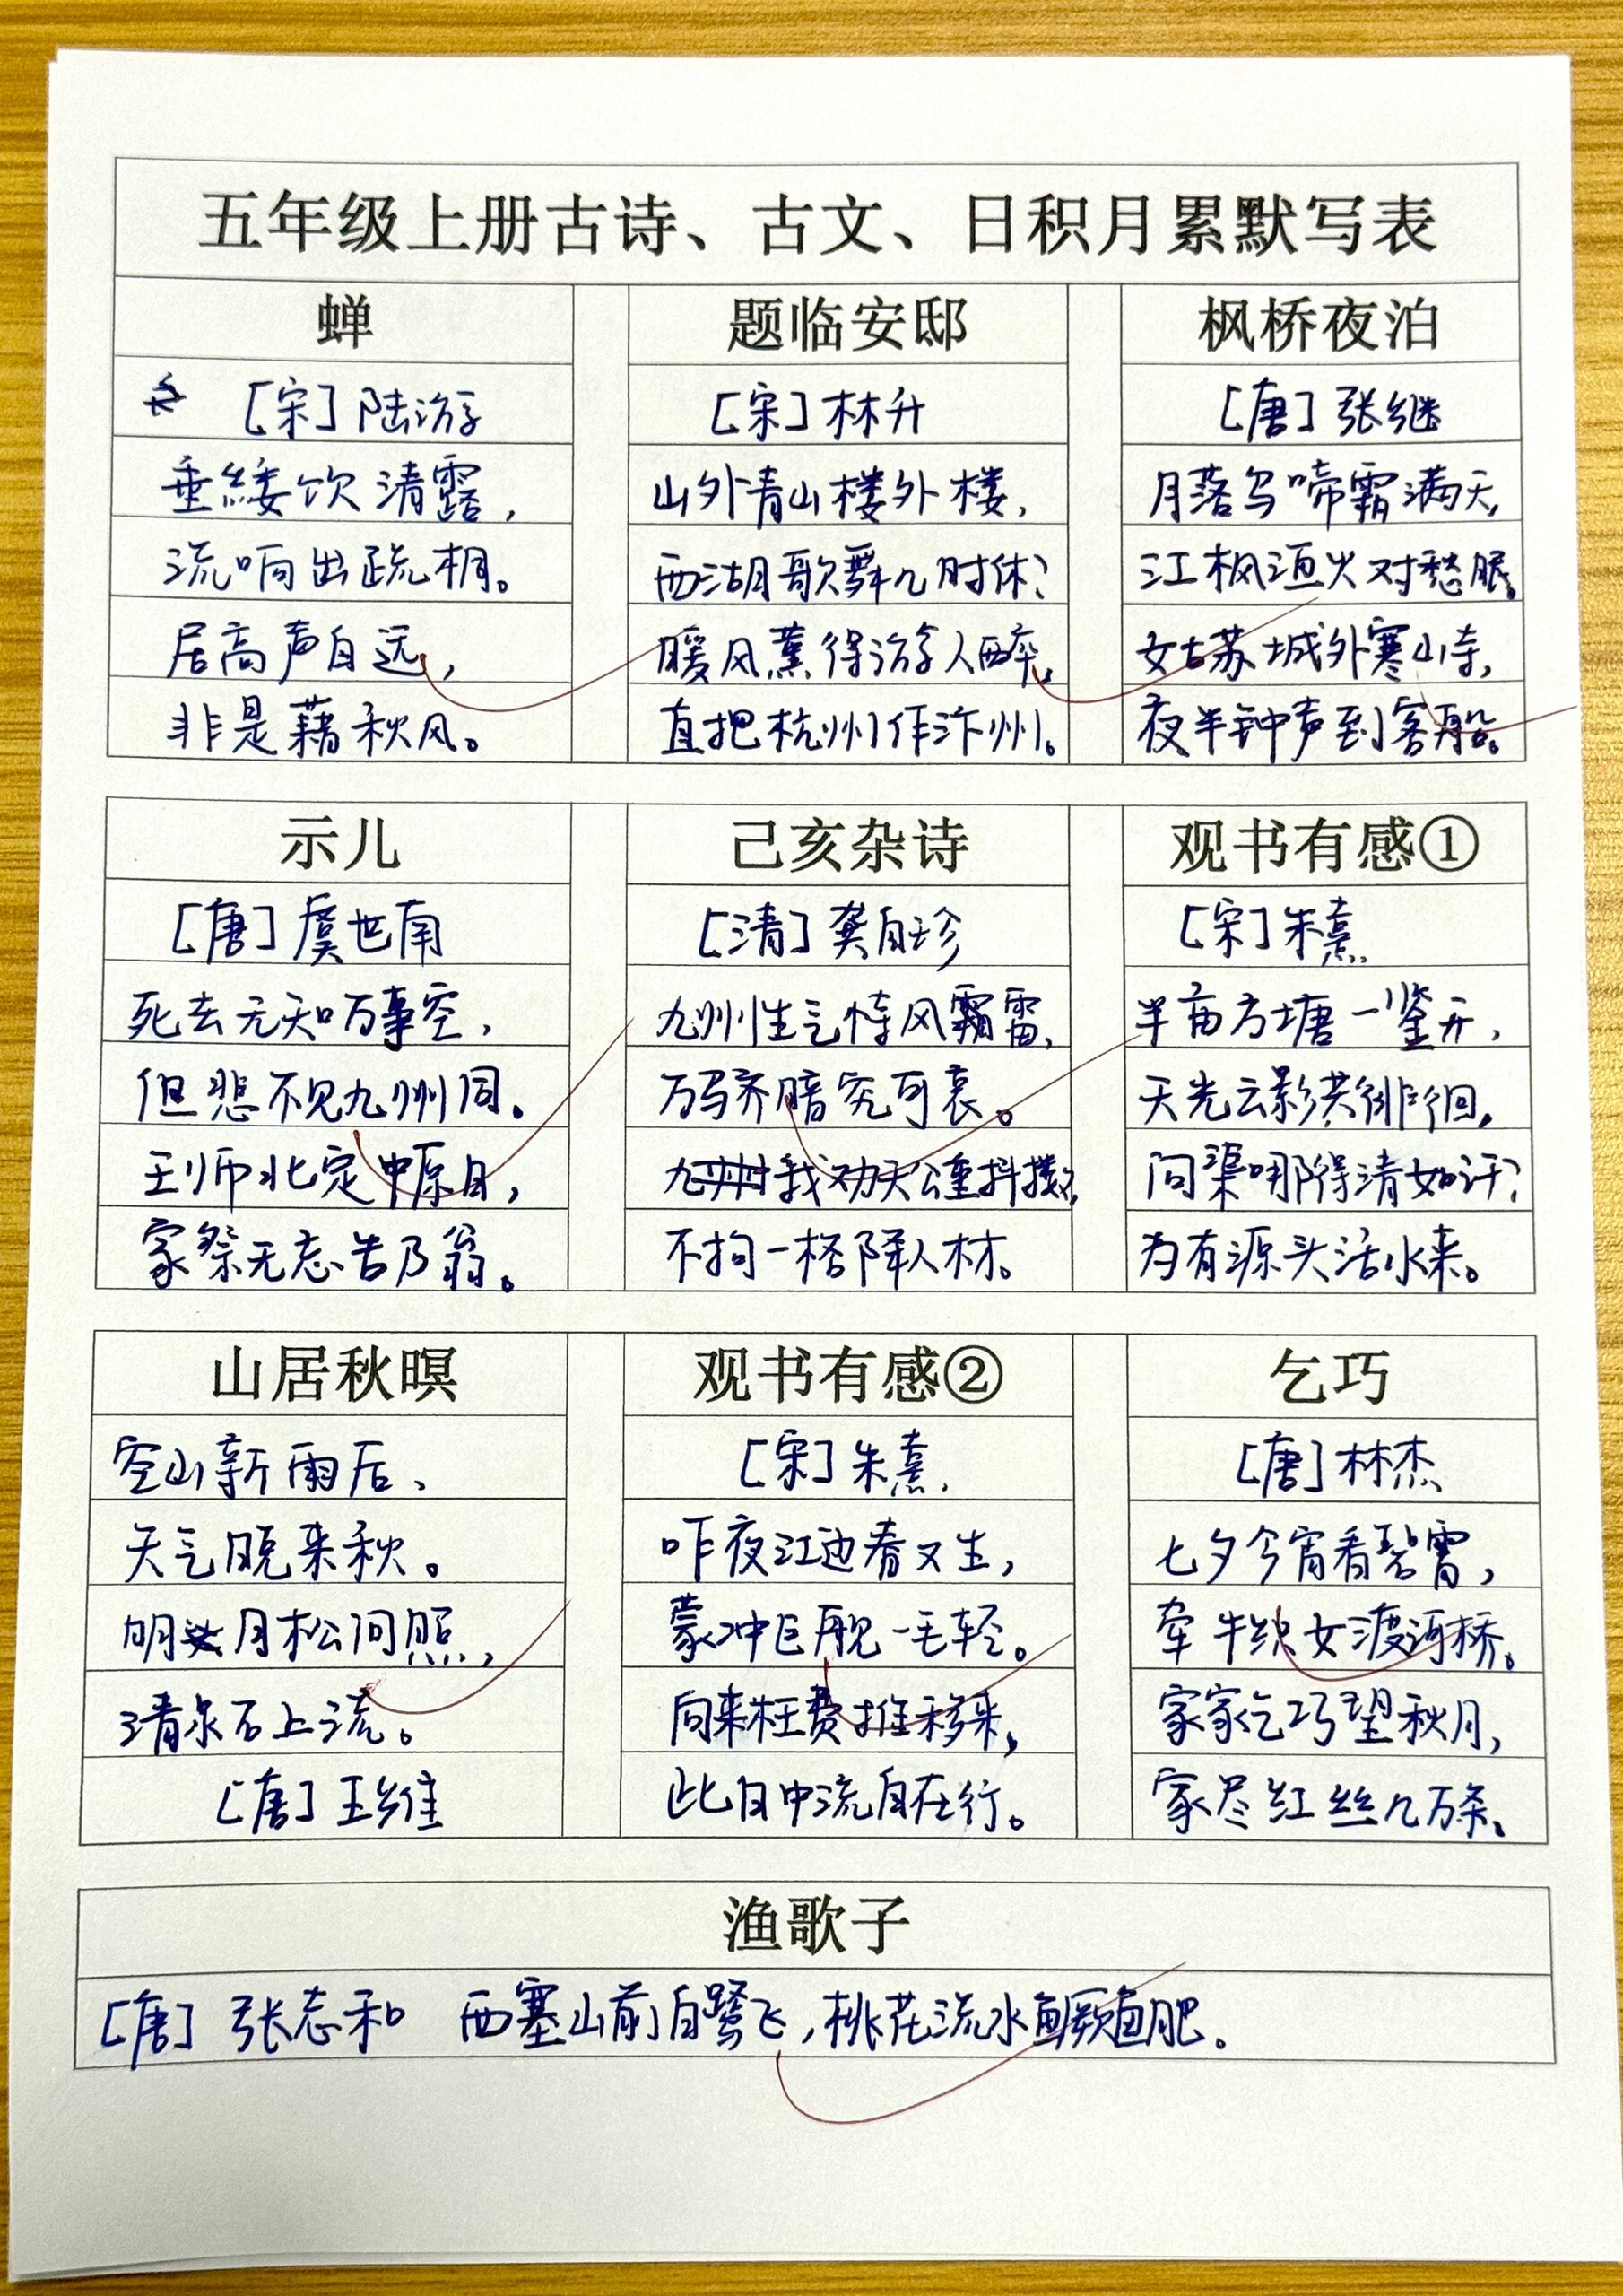 五年级上册古诗、古文、日积月累默写表
蝉
[宋] 陆游
垂緌饮清露，
流响出疏桐。
居高声自远，
非是藉秋风。
题临安邸
[宋] 林升
山外青山楼外楼，
西湖歌舞几时休？
暖风薰得游人醉，
直把杭州作汴州。
枫桥夜泊
[唐] 张继
月落乌啼霜满天，
江枫渔火对愁眠。
姑苏城外寒山寺，
夜半钟声到客船。
示儿
[唐] 虞世南
死去元知万事空，
但悲不见九州同。
王师北定中原日，
家祭无忘告乃翁。
己亥杂诗
[清] 龚自珍
九州生气恃风雷，
万马齐喑究可哀。
我劝天公重抖擞，
不拘一格降人材。
观书有感①
[宋] 朱熹
半亩方塘一鉴开，
天光云影共徘徊。
问渠哪得清如许？
为有源头活水来。
山居秋暝
空山新雨后、
天气晚来秋。
明月松间照，
清泉石上流。
[唐] 王维
观书有感②
[宋] 朱熹
昨夜江边春又生，
蒙冲巨舰一毛轻。
向来枉费推移来，
此日中流自在行。
乞巧
[唐] 林杰
七夕今宵看碧霄，
牵牛织女渡河桥。
家家乞巧望秋月，
家尽红丝几万条。
渔歌子
[唐] 张志和 西塞山前白鹭飞，桃花流水鳜鱼肥。